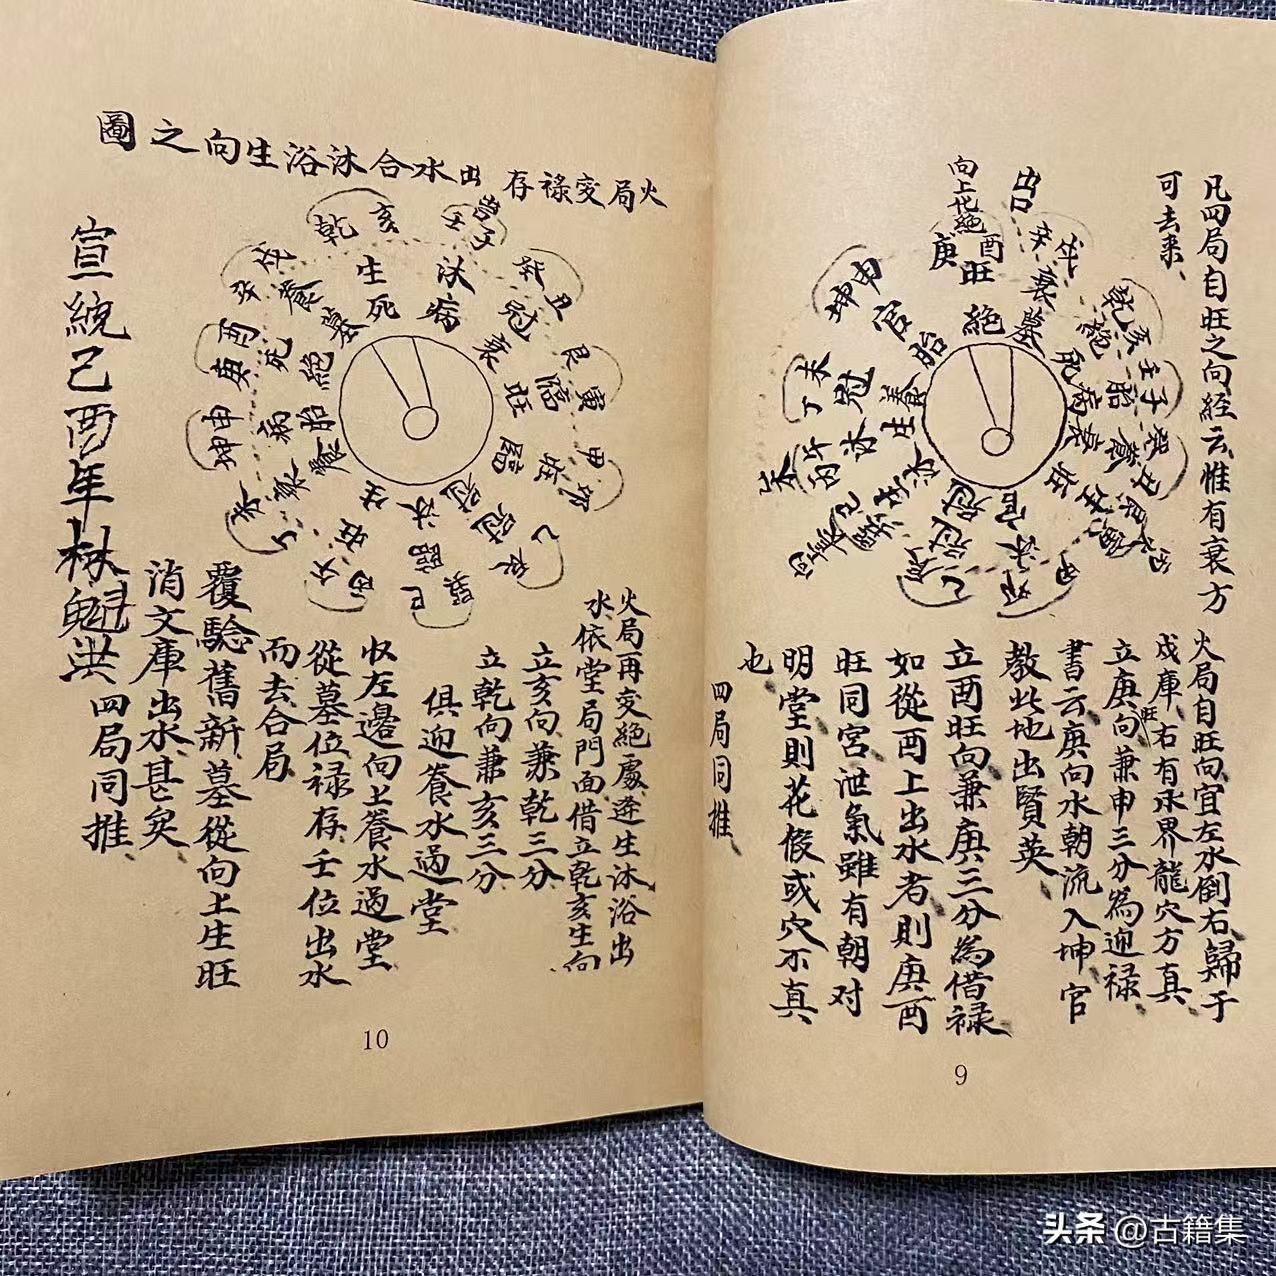 凡四局自旺之向經云惟有衰方
可去來、
向上化絕
辛戌
乾亥
壬子
庚酉
坤申
丁未
旺
衰
絕
胎
養
官
冠
沐
生
絕
墓
死
病
衰
旺
官
冠
沐
生
養
胎
火局自旺向、宜左水倒右、歸于
戌庫、右有水界龍穴方真、
立庚向兼申三分為迎祿、
旺
書云庚向水朝流入坤官
教此地出賢英、
立酉旺向兼庚三分為借祿
如從酉上出水者則庚酉
旺同宮、泄氣雖有朝对
明堂則花假或穴不真
也、
四局同推、
9
火局变祿存出水合沐浴生向之圖
乾亥
壬子
癸丑
艮寅
甲卯
乙辰
巽巳
丙午
丁未
坤申
庚酉
辛戌
生
沐
冠
臨
旺
衰
病
死
墓
絕
胎
養
火局再变絕處逢生沐浴出
水、依堂局門面借立乾亥生向
立亥向兼乾三分
立乾向兼亥三分
俱迎養水過堂
收左邊向上養水過堂
從墓位祿存壬位出水
而去合局
覆驗舊新墓從向上生旺
消文庫出水甚多、
四局同推、
宣統己酉年林魁洪
10
头条 @古籍集